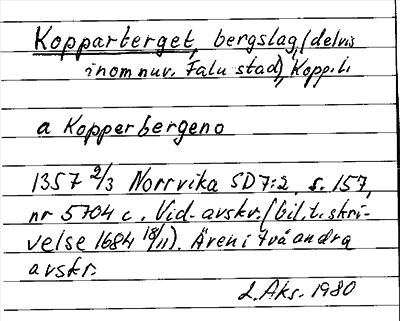 Kopparberget, bergslag, (delvis
inom nuv. Falu stad), Kopp. l.
a Kopperbergeno
1357 2/3 Norrvika SD7:2 s. 157,
nr 5704 c. Vid. avskr. (bil. t. skri-
velse 1684 18/11). Även i två andra
avskr.
L. Aks. 1980